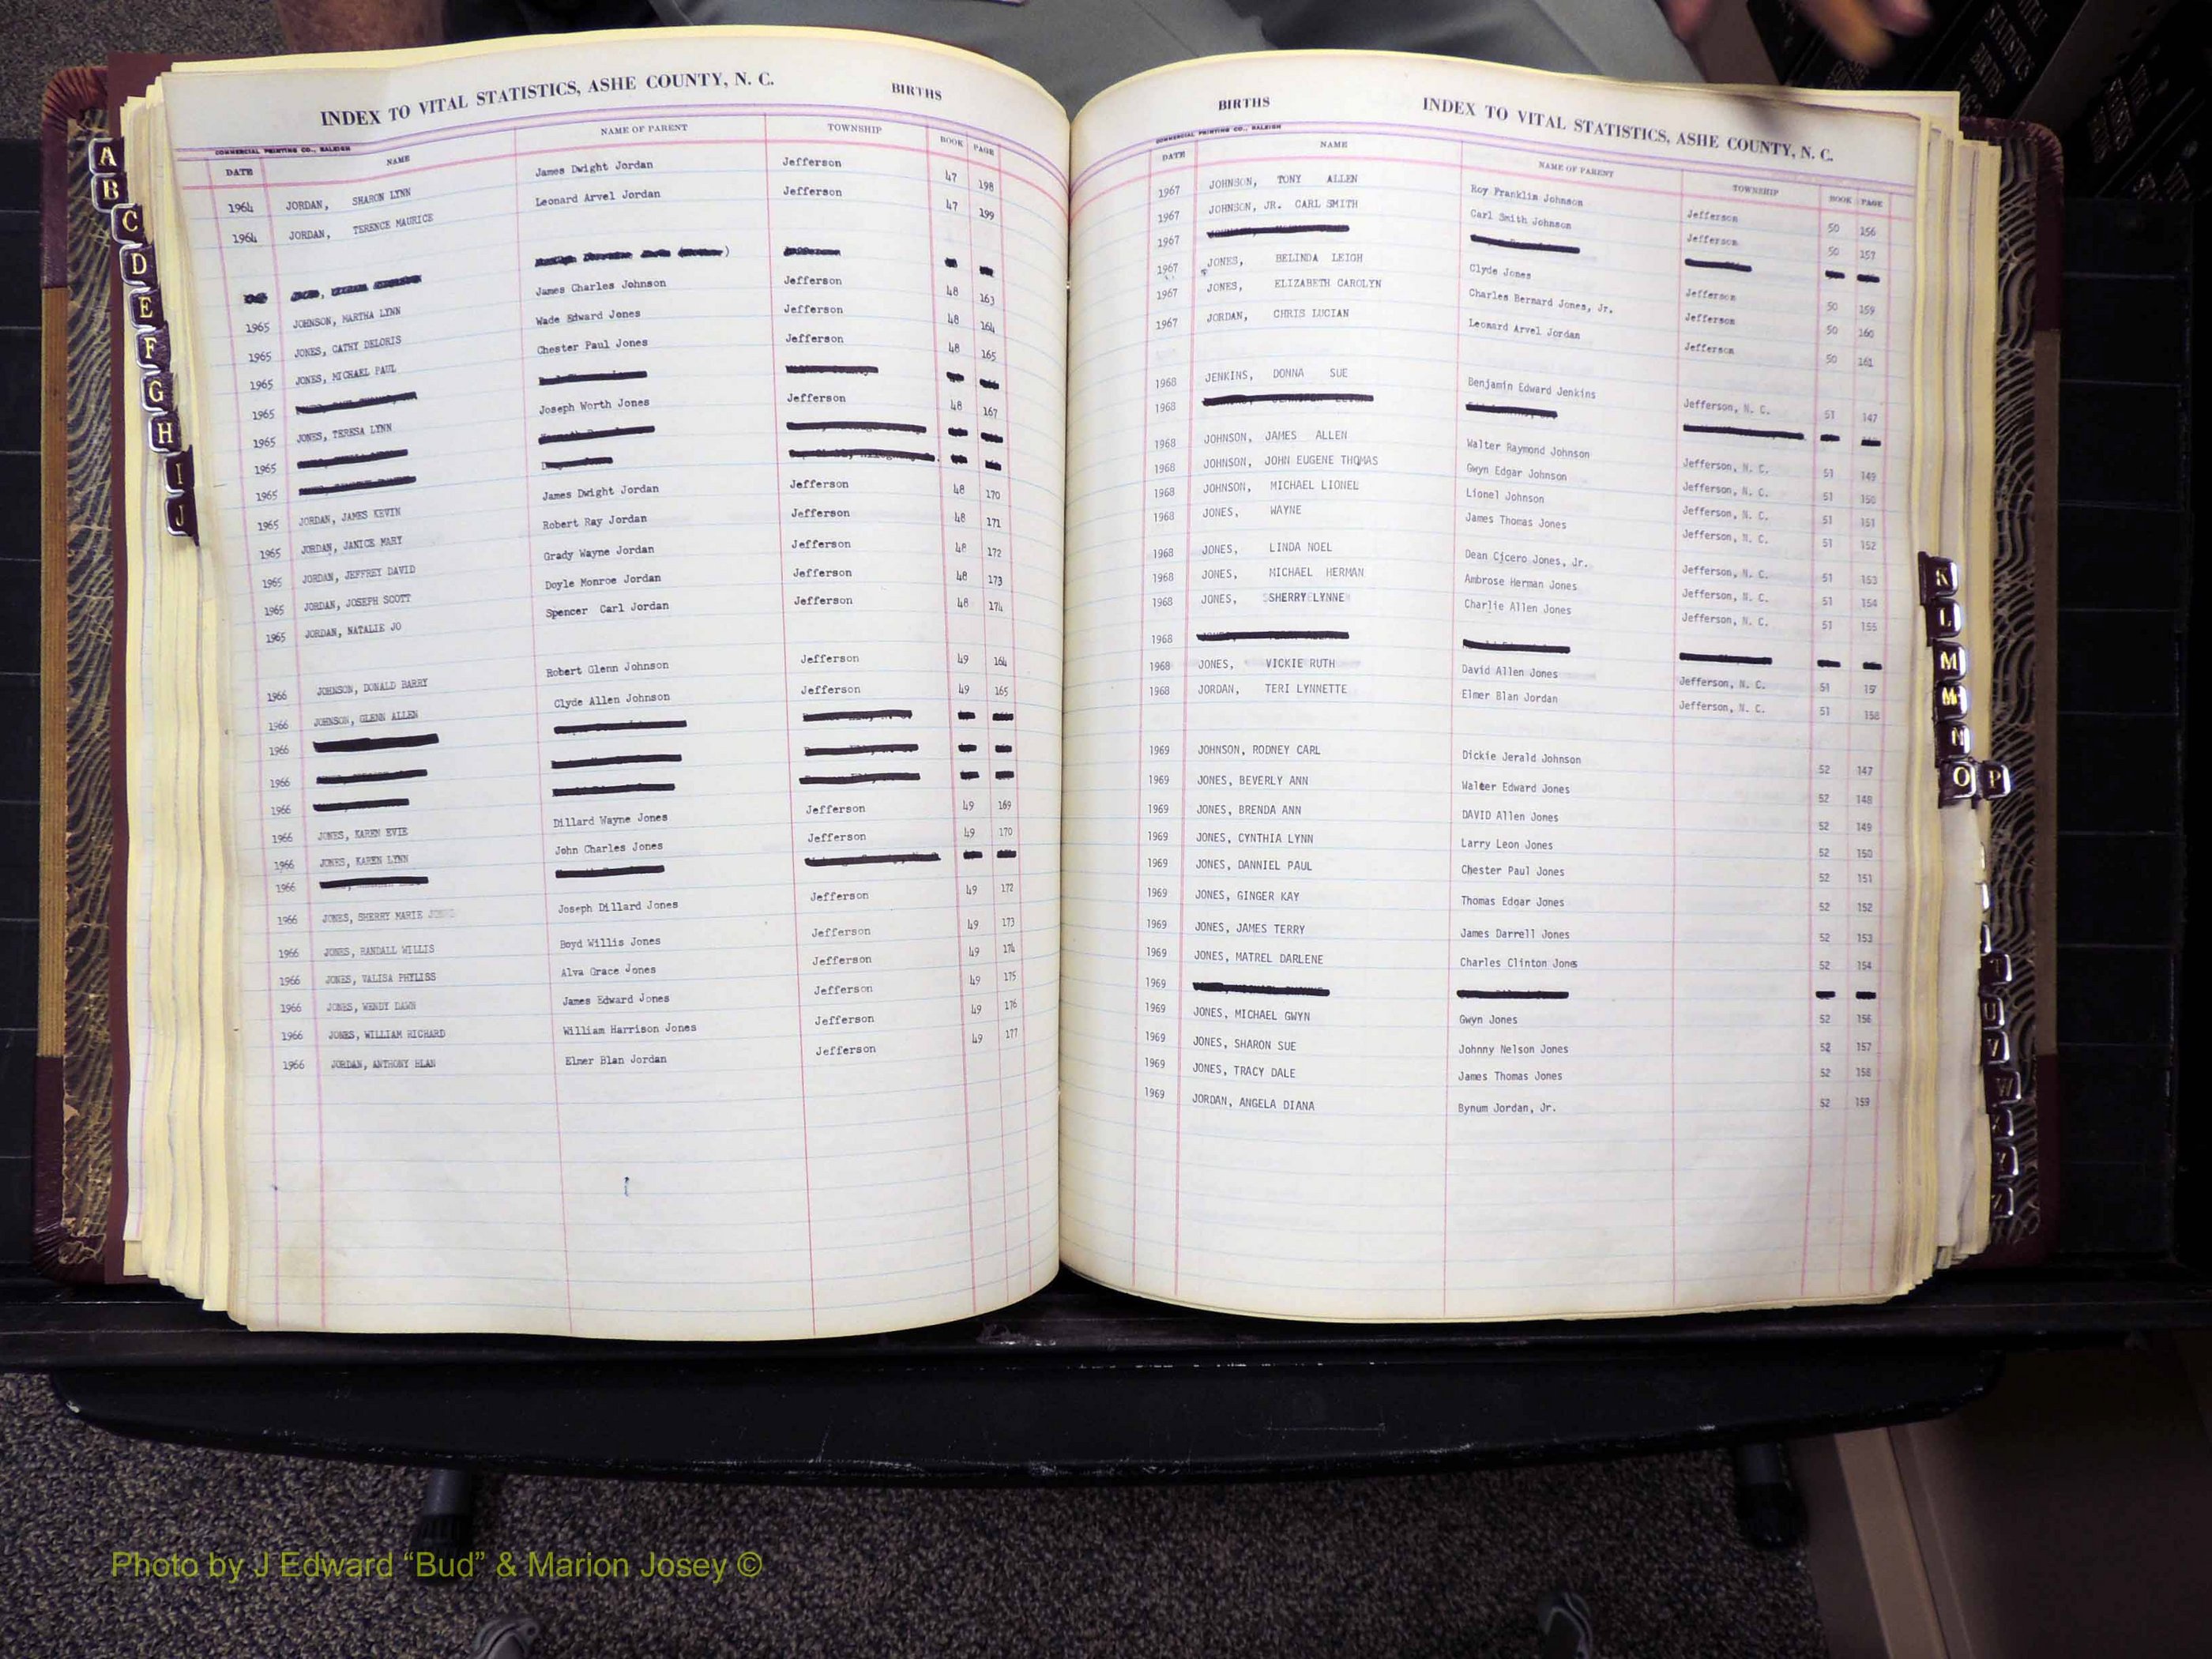 INDEX TO VITAL STATISTICS, ASHE COUNTY, N. C. BIRTHS
COMMERCIAL PRINTING CO., RALEIGH
DATE NAME NAME OF PARENT TOWNSHIP BOOK PAGE
1964 JORDAN, SHARON LYNN James Dwight Jordan Jefferson 47 198
1964 JORDAN, TERENCE MAURICE Leonard Arvel Jordan Jefferson 47 199
1965 JOHNSON, MARTHA LYNN James Charles Johnson Jefferson 48 163
1965 JONES, CATHY DELORIS Wade Edward Jones Jefferson 48 164
1965 JONES, MICHAEL PAUL Chester Paul Jones Jefferson 48 165
1965
1965 JONES, TERESA LYNN Joseph Worth Jones Jefferson 48 167
1965
1965
1965 JORDAN, JAMES KEVIN James Dwight Jordan Jefferson 48 170
1965 JORDAN, JANICE MARY Robert Ray Jordan Jefferson 48 171
1965 JORDAN, JEFFREY DAVID Grady Wayne Jordan Jefferson 48 172
1965 JORDAN, JOSEPH SCOTT Doyle Monroe Jordan Jefferson 48 173
1965 JORDAN, NATALIE JO Spencer Carl Jordan Jefferson 48 174
1966 JOHNSON, DONALD BARRY Robert Glenn Johnson Jefferson 49 164
1966 JOHNSON, GLENN ALLEN Clyde Allen Johnson Jefferson 49 165
1966
1966
1966
1966 JONES, KAREN EVIE Dillard Wayne Jones Jefferson 49 169
1966 JONES, KAREN LYNN John Charles Jones Jefferson 49 170
1966
1966 JONES, SHERRY MARIE Joseph Dillard Jones Jefferson 49 172
1966 JONES, RANDALL WILLIS Boyd Willis Jones Jefferson 49 173
1966 JONES, VALISA PHYLISS Alva Grace Jones Jefferson 49 174
1966 JONES, WENDY DAWN James Edward Jones Jefferson 49 175
1966 JONES, WILLIAM RICHARD William Harrison Jones Jefferson 49 176
1966 JORDAN, ANTHONY BLAN Elmer Blan Jordan Jefferson 49 177
BIRTHS INDEX TO VITAL STATISTICS, ASHE COUNTY, N. C.
COMMERCIAL PRINTING CO., RALEIGH
DATE NAME NAME OF PARENT TOWNSHIP BOOK PAGE
1967 JOHNSON, TONY ALLEN Roy Franklin Johnson Jefferson 50 156
1967 JOHNSON, JR. CARL SMITH Carl Smith Johnson Jefferson 50 157
1967
1967 JONES, BELINDA LEIGH Clyde Jones Jefferson 50 159
1967 JONES, ELIZABETH CAROLYN Charles Bernard Jones, Jr. Jefferson 50 160
1967 JORDAN, CHRIS LUCIAN Leonard Arvel Jordan Jefferson 50 161
1968 JENKINS, DONNA SUE Benjamin Edward Jenkins Jefferson, N. C. 51 147
1968
1968 JOHNSON, JAMES ALLEN Walter Raymond Johnson Jefferson, N. C. 51 149
1968 JOHNSON, JOHN EUGENE THOMAS Gwyn Edgar Johnson Jefferson, N. C. 51 150
1968 JOHNSON, MICHAEL LIONEL Lionel Johnson Jefferson, N. C. 51 151
1968 JONES, WAYNE James Thomas Jones Jefferson, N. C. 51 152
1968 JONES, LINDA NOEL Dean Cjcero Jones, Jr. Jefferson, N. C. 51 153
1968 JONES, MICHAEL HERMAN Ambrose Herman Jones Jefferson, N. C. 51 154
1968 JONES, SHERRY LYNNE Charlie Allen Jones Jefferson, N. C. 51 155
1968
1968 JONES, VICKIE RUTH David Allen Jones Jefferson, N. C. 51 15
1968 JORDAN, TERI LYNNETTE Elmer Blan Jordan Jefferson, N. C. 51 158
1969 JOHNSON, RODNEY CARL Dickie Jerald Johnson 52 147
1969 JONES, BEVERLY ANN Walter Edward Jones 52 148
1969 JONES, BRENDA ANN DAVID Allen Jones 52 149
1969 JONES, CYNTHIA LYNN Larry Leon Jones 52 150
1969 JONES, DANNIEL PAUL Chester Paul Jones 52 151
1969 JONES, GINGER KAY Thomas Edgar Jones 52 152
1969 JONES, JAMES TERRY James Darrell Jones 52 153
1969 JONES, MATREL DARLENE Charles Clinton Jones 52 154
1969
1969 JONES, MICHAEL GWYN Gwyn Jones 52 156
1969 JONES, SHARON SUE Johnny Nelson Jones 52 157
1969 JONES, TRACY DALE James Thomas Jones 52 158
1969 JORDAN, ANGELA DIANA Bynum Jordan, Jr. 52 159
A
B
C
D
E
F
G
H
I
J
K
L
M
Mc
N
O P
T
U
V
W
Photo by J Edward “Bud” & Marion Josey ©